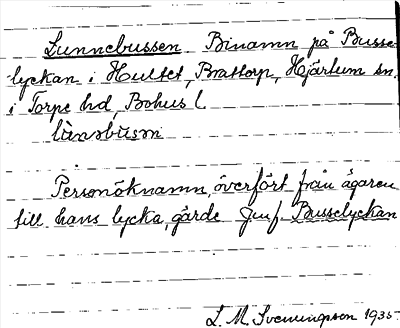 Lunnebussen Binamn på Busse-
lyckan i Hultet, Brattorp, Hjärtum sn.
i Torpe hd, Bohus l.
Personöknamn, överfört från ägaren
till hans lycka, gärde Jmf. Busselyckan
L. M. Svenungsson 1935.